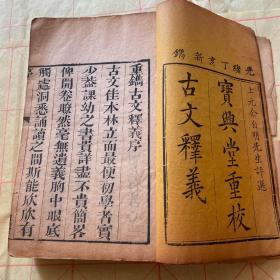 光緒丁亥新鐫
上元余自明先生評選
寶興堂重校
古文釋義
重鐫古文釋義序
古文佳本林立而最便初學者實
少益課幼之書貴詳盡不貴簡畧
俾開卷瞭然毫無遺義胸中眼底
觸處洞悉誦讀之間斯能欣欣有